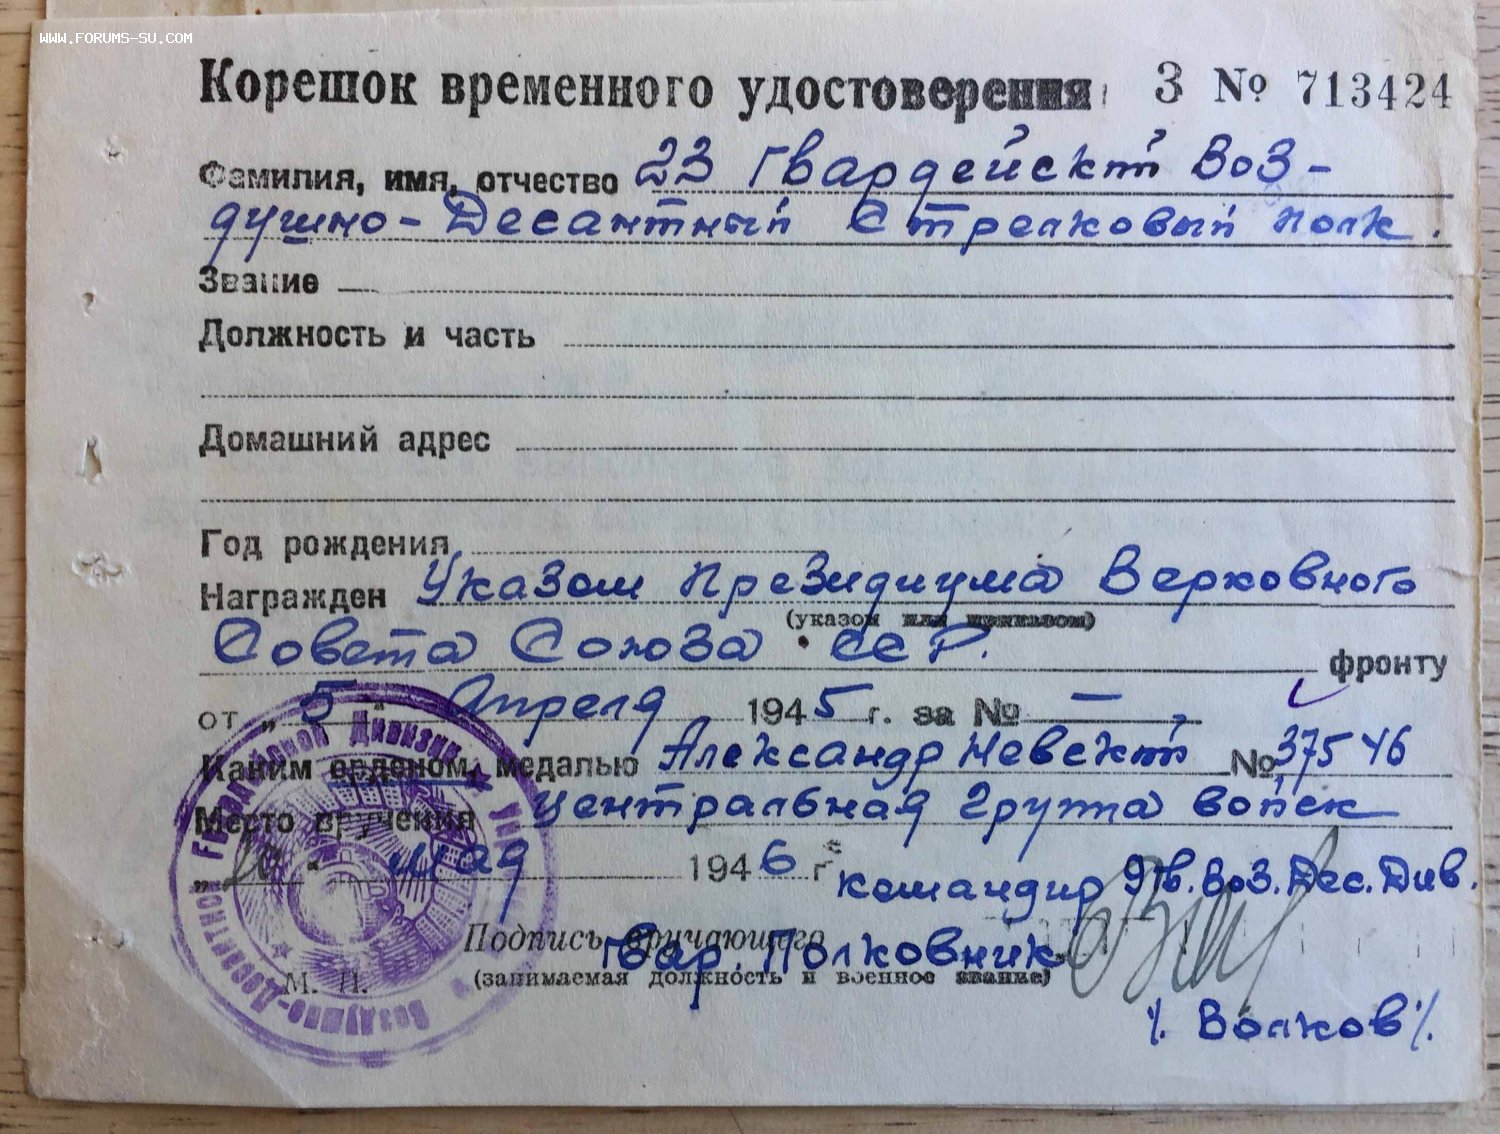 WWW.FORUMS-SU.COM
Корешок временного удостоверения З № 713424
Фамилия, имя, отчество 23 Гвардейский Воз-
душно-Десантный Стрелковый полк.
Звание
Должность и часть
Домашний адрес
Год рождения
Награжден Указом Президиума Верховного
(указом или приказом)
Совета Союза ССР. фронту
от „ 5 " Апреля 1945 г. за № —
Каким орденом, медалью Александр Невский № 37546
Место вручения Центральная группа войск
„ " мая 1946 г.
командир Гв. Воз. Дес. Див.
Подпись вручающего
Гвар. Полковник
(занимаемая должность и военное звание)
М. П.
/. Волков/.
Воздушно-Десантной Гвардейской Дивизии